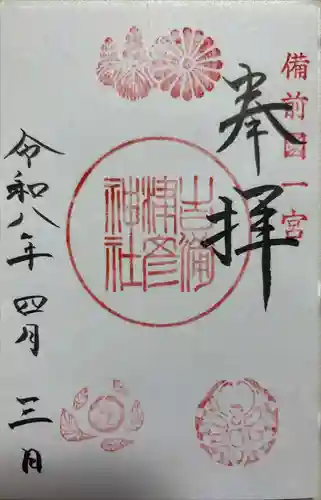 備前國一宮
奉拝
吉備
津彦
神社
令和八年四月三日